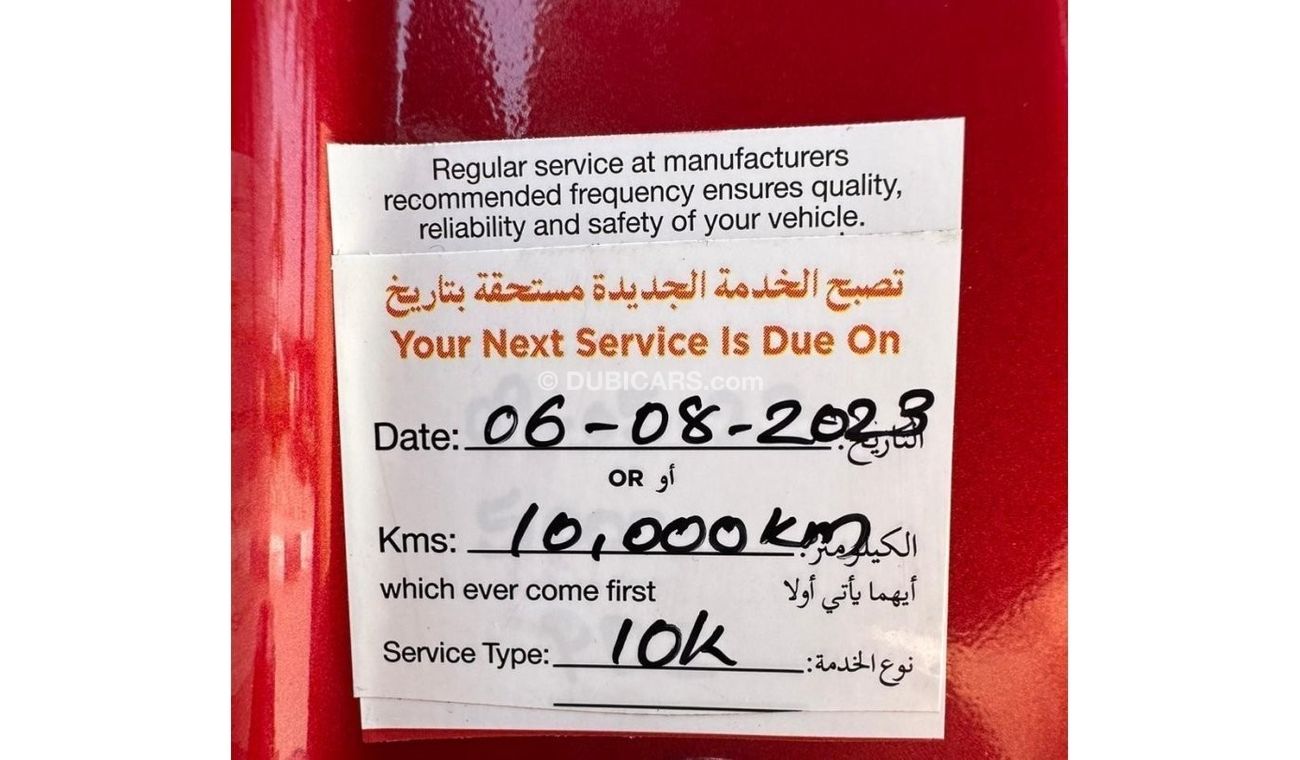 Regular service at manufacturers
recommended frequency ensures quality,
reliability and safety of your vehicle.
تصبح الخدمة الجديدة مستحقة بتاريخ
Your Next Service Is Due On
© DUBICARS.com
Date: 06-08-2023 التاريخ:
OR أو
Kms: 10,000km الكيلومتر:
which ever come first أيهما يأتي أولا
Service Type: 10k نوع الخدمة: